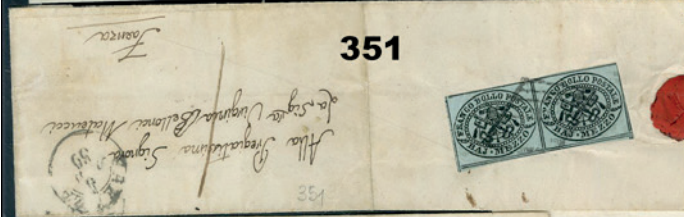 351
Alla
Pregiatissima Signora
La Sigra Virginia Bellonci Matteucci
Faenza
351
FRANCO BOLLO POSTALE
BAJ. MEZZO
FRANCO BOLLO POSTALE
BAJ. MEZZO
59